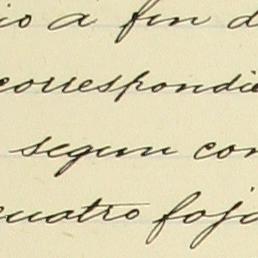 io a fin d
correspondie
segun con
cuatro foja